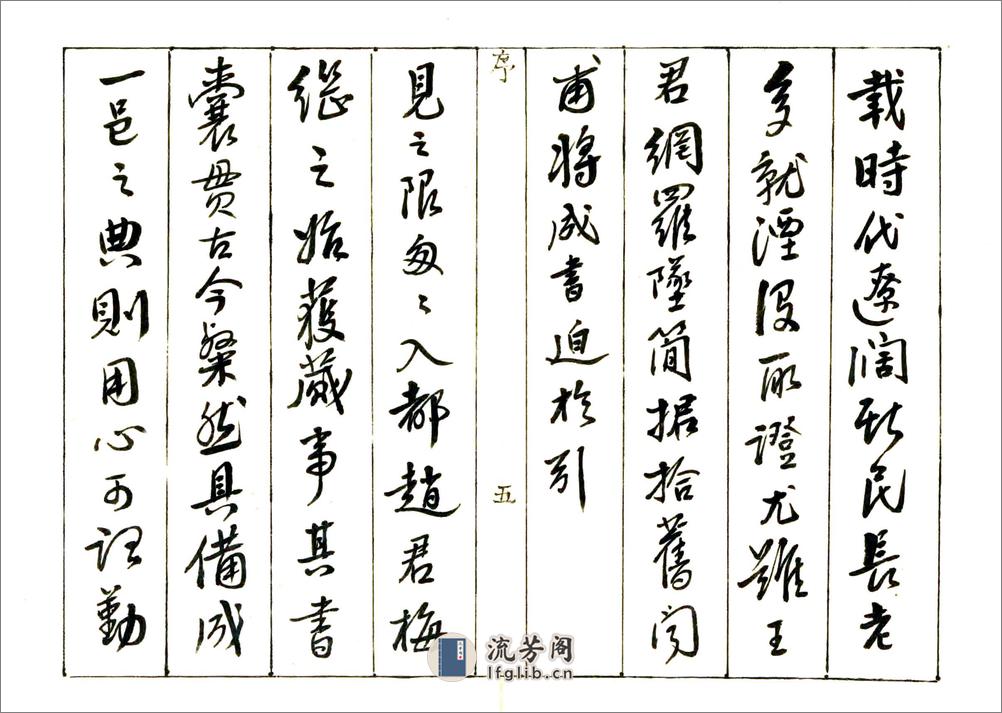 載時代遼闊民長老
多就湮没取證尤難王
君網羅墜簡据拾舊聞
甫將成書迫於引
序 五
見之限匆〻入都趙君梅
繼之始獲蕆事其書
囊貫古今粲然具備成
一邑之典則用心可謂勤
流芳阁
lfglib.cn